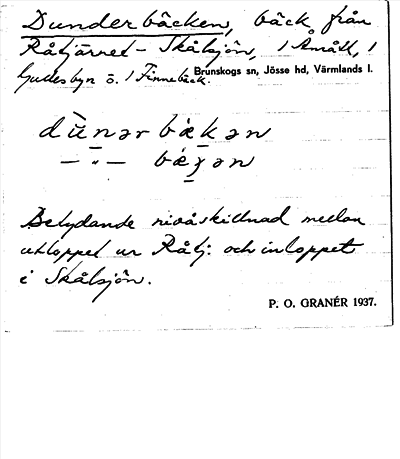 Dunderbäcken, bäck från
Råtjärnet – Skålsjön, 1 Åmått, 1
Gudesbyn ö. 1 Finnebäck.
Brunskogs sn, Jösse hd, Värmlands l.
dùnər bækən
– " – bæɣən
Betydande nivåskillnad mellan
utloppet ur Råtj: och inloppet
i Skålsjön.
P. O. GRANÉR 1937.